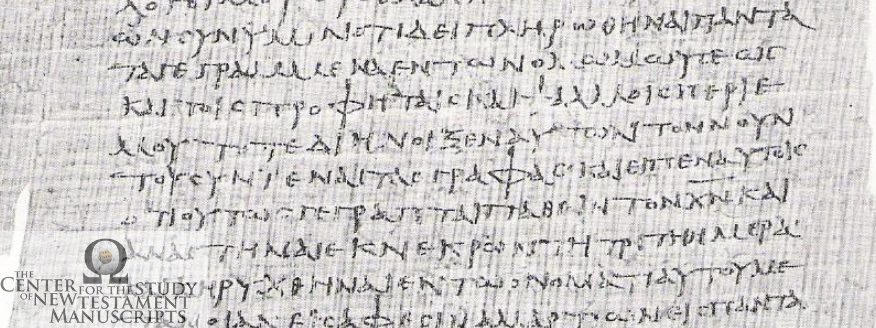 ΩΝϹΥΝΥΜΙΝΟΤΙΔΕΙΠΛΗΡΩΘΗΝΑΙΠΑΝΤΑ
ΤΑΓΕΓΡΑΜΜΕΝΑΕΝΤΩΝΟΜΩΜΩΥϹΕΩϹ
ΚΑΙΤΟΙϹΠΡΟΦΗΤΑΙϹΚΑΙΨΑΛΜΟΙϹΠΕΡΙΕ
ΜΟΥΤΟΤΕΔΙΗΝΟΙΞΕΝΑΥΤΩΝΤΟΝΝΟΥΝ
ΤΟΥϹΥΝΙΕΝΑΙΤΑϹΓΡΑΦΑϹΚΑΙΕΙΠΕΝΑΥΤΟΙϹ
ΟΤΙΟΥΤΩϹΓΕΓΡΑΠΤΑΙΠΑΘΕΙΝΤΟΝΧ̅Ν̅ΚΑΙ
ΑΝΑϹΤΗΝΑΙΕΚΝΕΚΡΩΝΤΗΤΡΙΤΗΗΜΕΡΑ
ΗΡΥΧΘΗΝΑΙΕΝΤΩΟΝΟΜΑΤΙΑΥΤΟΥΜΕ
ΝΟΙΑΝΕΙϹΑΦΕϹΙΝΑΜΑΡΤΙΩΝΕΙϹΠΑΝΤΑ
THE CENTER FOR THE STUDY
OF NEW TESTAMENT
MANUSCRIPTS